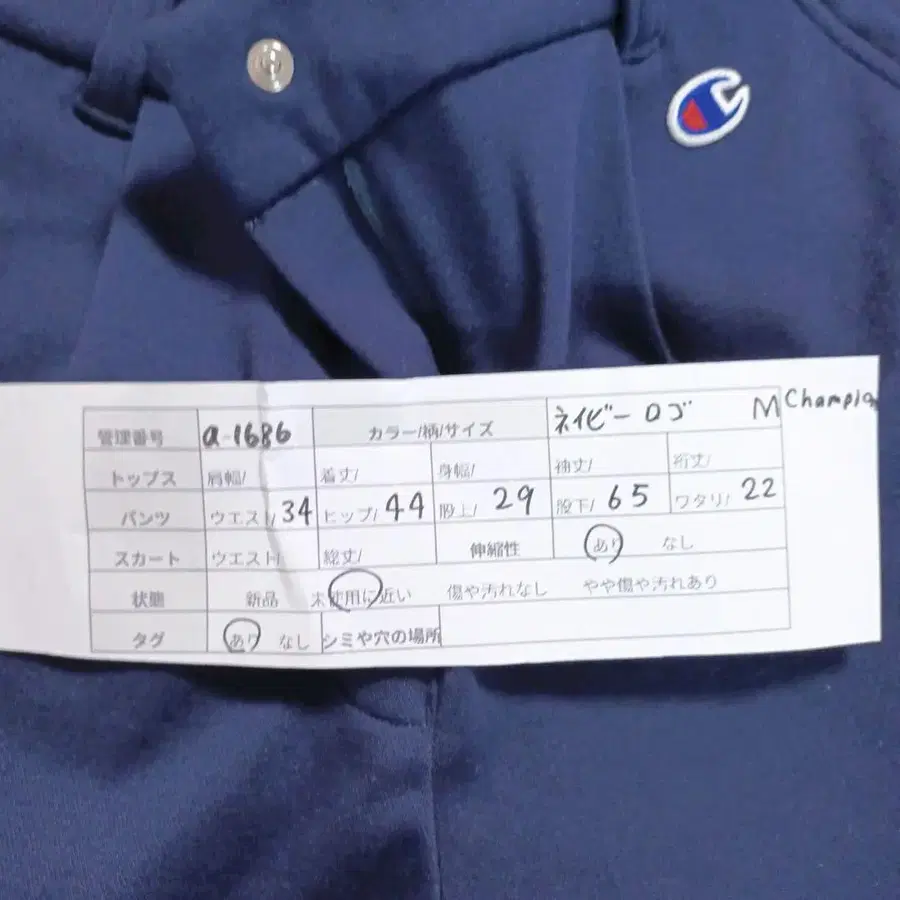 管理番号 a-1686 カラー/柄/サイズ ネイビー ロゴ M Champion
トップス 肩幅/ 着丈/ 身幅/ 袖丈/ 裄丈/
パンツ ウエスト/34 ヒップ/44 股上/ 29 股下/65 ワタリ/ 22
スカート ウエスト/ 総丈/ 伸縮性 あり なし
状態 新品 未使用に近い 傷や汚れなし やや傷や汚れあり
タグ あり なし シミや穴の場所